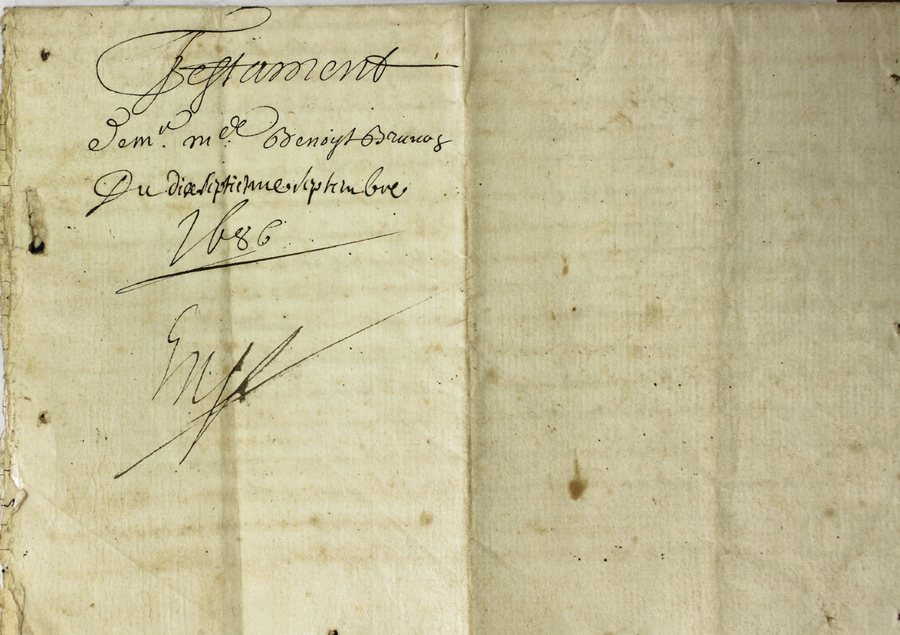 Testament
De mr. mre. Benoyt Brunos
Du dixseptieme septembre
1686